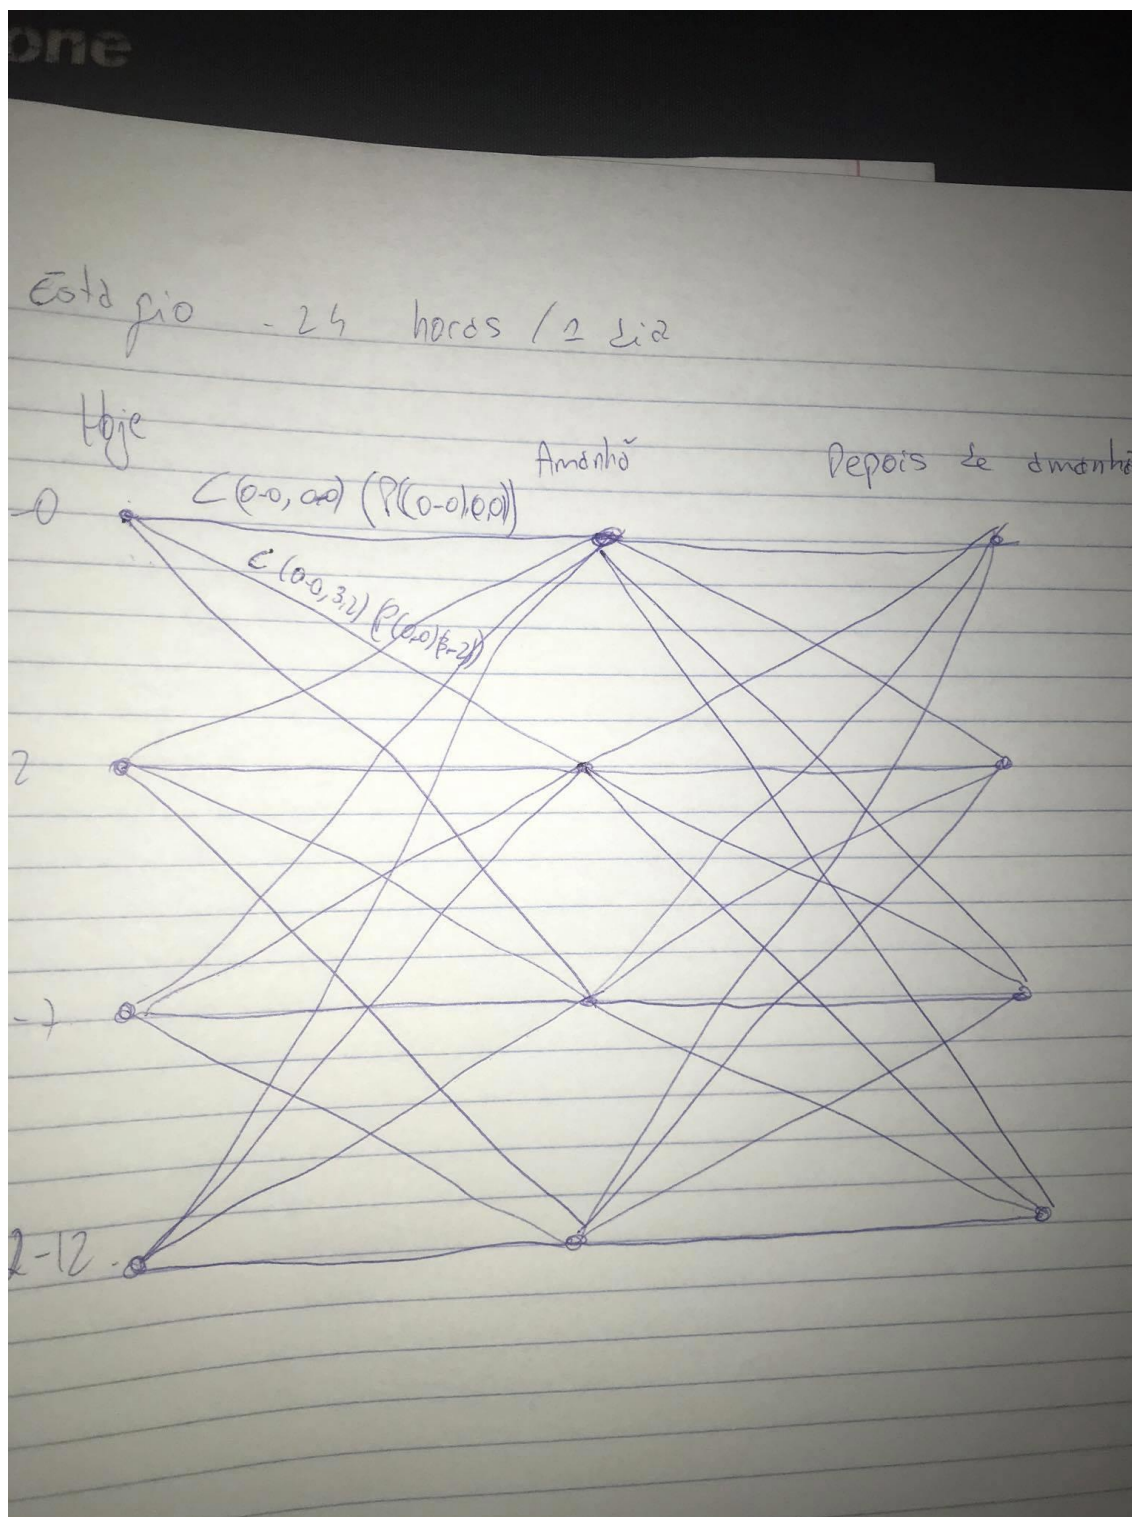 one
Estágio - 24 horas / 1 dia
Hoje
Amanhã
Depois de amanhã
-0
C (0-0, 0-0) (P((0-0),0,0))
C (0-0, 3,2) (P(0,0)(3-2))
2
-7
2-12